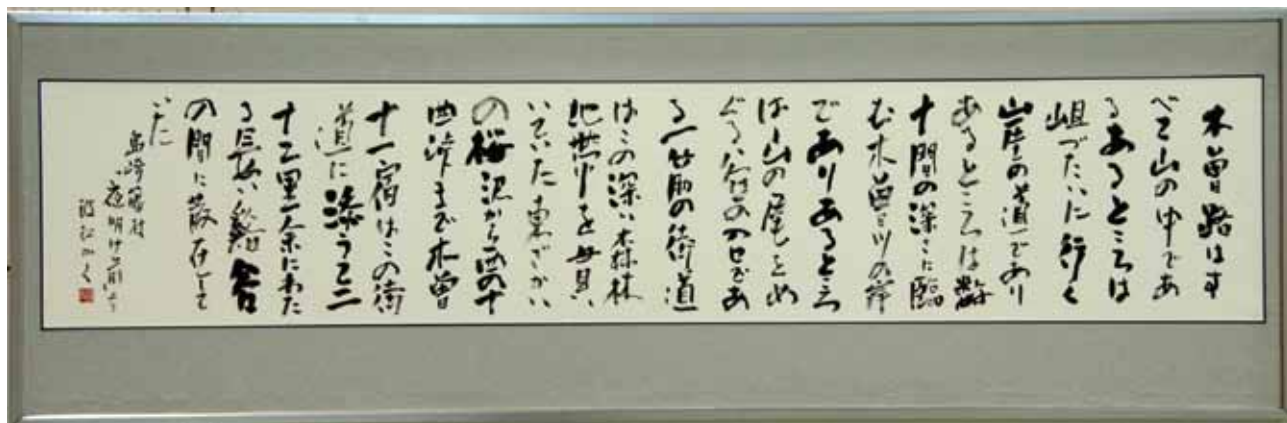 木曽路はす
べて山の中であ
るあるところは
岨づたいに行く
崖の道であり
あるところは数
十間の深さに臨
む木曽川の岸
でありあるところ
は山の尾をめ
ぐる谷の入口であ
る一筋の街道
はこの深い森林
地帯を貫い
ていた東ざかい
の桜沢から西の十
曲峠まで木曽
十一宿はこの街
道に添うて二
十二里余にわた
る長い谿谷
の間に散在して
いた
島崎藤村
夜明け前より
かく